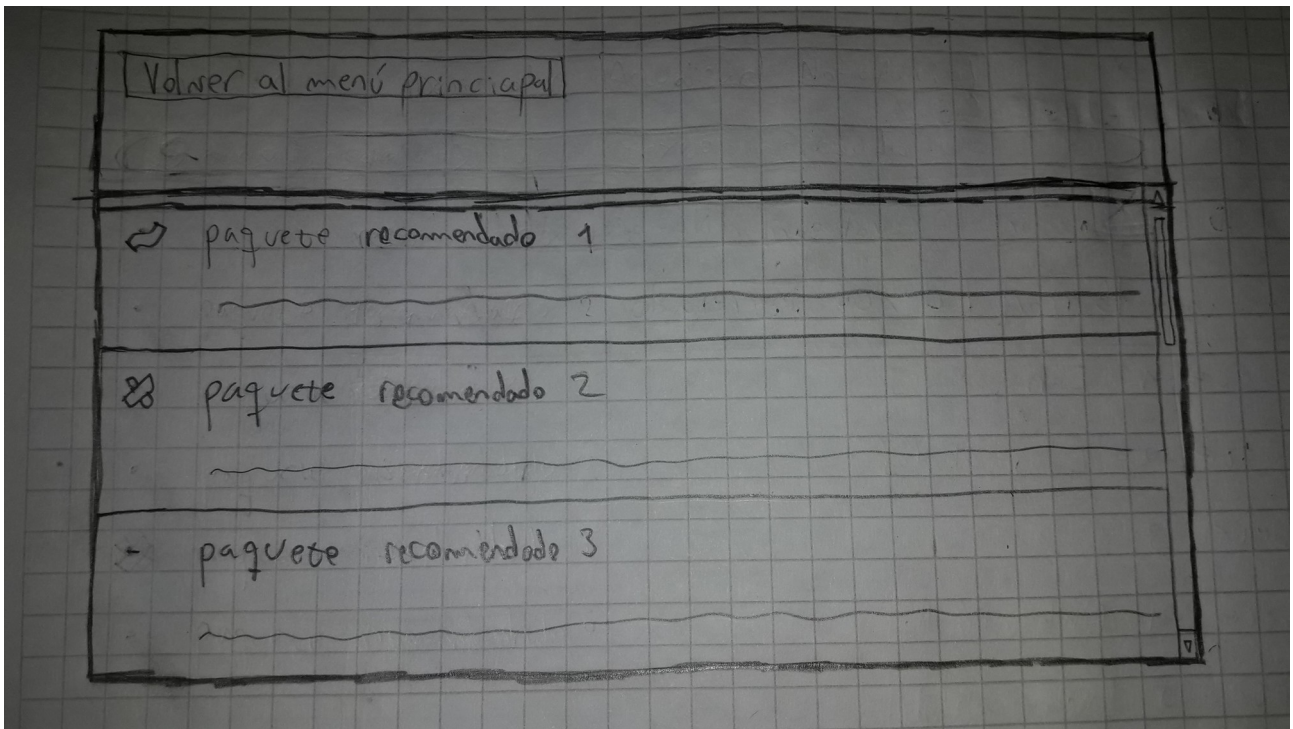 Volver al menú princiapal
paquete recomendado 1
paquete recomendado 2
paquete recomendado 3